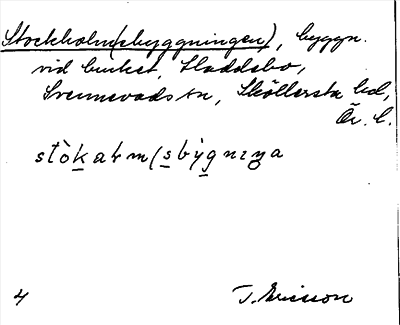 Stockholm(sbyggningen), byggn.
vid bruket, Haddebo,
Svennevads sn, Sköllersta hd,
Ör. l.
stòkaɫm(sbỳgnɪŋa
4 T. Ericsson